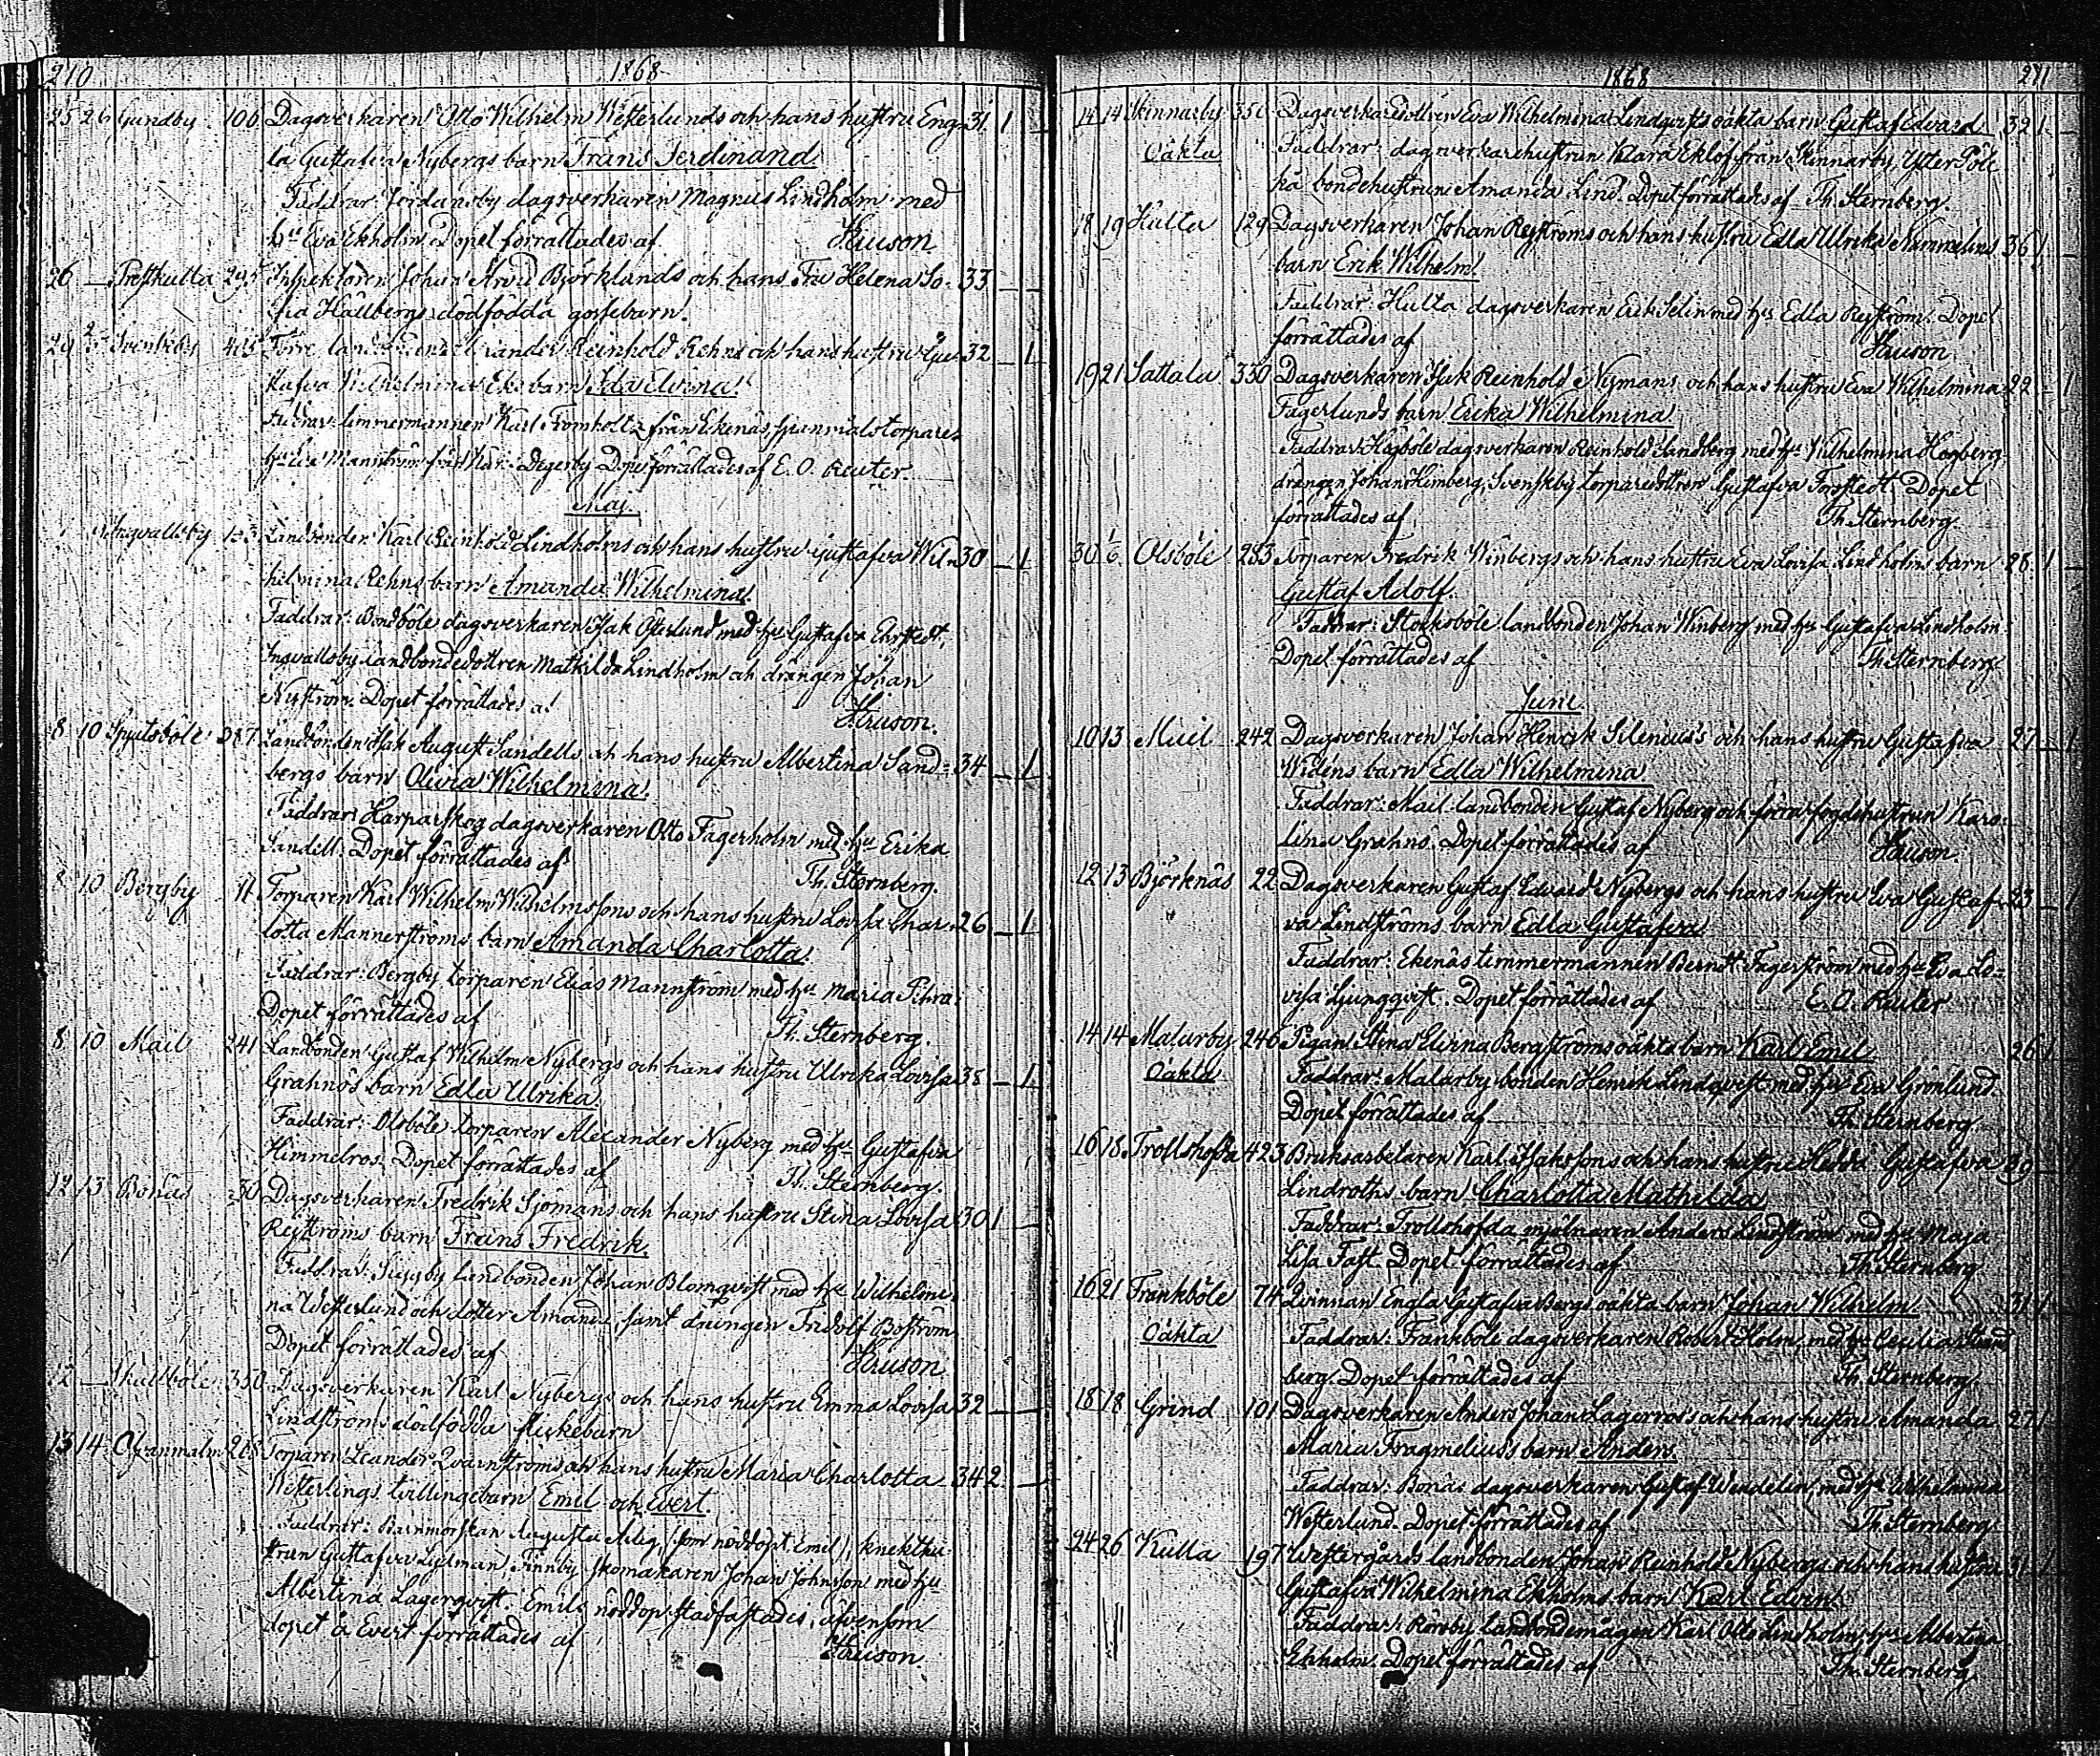 210 1868
25 26 Gundby 106 Dagsverkaren Otto Wilhelm Westerlunds och hans hustru Eng- 31 1 —
la Gustafva Nybergs barn Frans Ferdinand.
Faddrar: Jordansby dagsverkaren Magnus Lindholm med
hu Eva Ekholm. Dopet förrättades af Kruson
26 — Prestkulla 295 Inspektoren Johan Arvid Björklunds och hans Fru Helena So- 33 — —
fia Hällbergs dödfödda gossebarn.
29 Svenskby 405 Förre landbonden Alexander Reinhold Rehns och hans hustru Gu- 32 — 1
stafva Wilhelmina Eks barn Ida Elvina.
Faddrar: timmermannen Karl Fromholtz från Ekenäs, torpare
hu Eva Mannström från Degerby. Dopet förrättades af E. O. Reuter.
Maj.
Ingvallsby 133 Landbonden Karl Reinhold Lindholms och hans hustru Gustafva Wil- 30 — 1
helmina Rehns barn Amanda Wilhelmina.
Faddrar: Bondböle dagsverkaren Isak Österlund med hu Gustafva Ehrstedt,
Ingvallsby landbondedottren Mathilda Lindholm och drängen Johan
Nyström. Dopet förrättades af Kruson.
8 10 Spjutsböle 387 Landbonden Isak August Sandells och hans hustru Albertina Sand- 34 — 1
bergs barn Olivia Wilhelmina.
Faddrar: Harparskog dagsverkaren Otto Fagerholm med hu Erika
Sandell. Dopet förrättades af Th. Sternberg.
8 10 Bergby 11 Torparen Karl Wilhelm Wilhelmssons och hans hustru Lovisa Char- 26 — 1
lotta Mannerströms barn Amanda Charlotta.
Faddrar: Bergby torparen Elias Mannström med hu Maria Pihra.
Dopet förrättades af Th. Sternberg.
8 10 Mail 241 Landbonden Gustaf Wilhelm Nybergs och hans hustru Ulrika Lovisa 38 — 1
Grahnös barn Edla Ulrika.
Faddrar: Olsböle torparen Alexander Nyberg med hu Gustafva
Himmelros. Dopet förrättades af Th. Sternberg.
12 13 Bonäs 30 Dagsverkaren Fredrik Sjömans och hans hustru Stina Lovisa 30 1 —
Reijströms barn Frans Fredrik.
Faddrar: landbonden Johan Blomqvist med hu Wilhelmi-
na Westerlund och dotter Amanda, samt drängen Fridolf Boström
Dopet förrättades af Kruson
12 — Skållböle 350 Dagsverkaren Karl Nybergs och hans hustru Emma Lovisa 32 — —
Lindströms dödfödda flickebarn
13 14 Öfvanmalm 265 Torparen Leander Qvarnströms och hans hustru Maria Charlotta 34 2 —
Westerlings tvillingebarn Emil och Evert.
Faddrar: Barnmorskan Augusta (som nöddöpt Emil), knekthu-
strun Gustafva Lydman, Finnby skomakaren Johan Johnsson med hu
Albertina Lagerqvist. Emils nöddop stadfästades, äfvensom
dopet å Evert förrättades af Kruson.
1868 211
14 14 Skinnarby 350 Dagsverkaredottren Eva Wilhelmina Lindqvists oäkta barn Gustaf Edvard 32 1 —
Oäkta Faddrar: dagsverkarehustrun Klara Eklöf från Skinnarby, Ytter Töle-
ka bondehustrun Amanda Lind. Dopet förrättades af Th. Sternberg.
18 19 Hulta 129 Dagsverkaren Johan Reijströms och hans hustru Edla Ulrika Sammelins 36 1 —
barn Erik Wilhelm.
Faddrar: Hulta dagsverkaren Erik Selin med hu Edla Reijström. Dopet
förrättades af Kruson
19 21 Sattala 330 Dagsverkaren Isak Reinhold Nymans och hans hustru Eva Wilhelmina 22 — 1
Fagerlunds barn Erika Wilhelmina
Faddrar: Högböle dagsverkaren Reinhold Sandberg med hu Wilhelmina Högberg,
drängen Johan Himberg, Svenskby torparedottren Gustafva Forstedt. Dopet
förrättades af Th. Sternberg.
30 1/6 Olsböle 283 Torparen Fredrik Winbergs och hans hustru Eva Lovisa Lindholms barn 28 1 —
Gustaf Adolf.
Faddrar: Stocksböle landbonden Johan Winberg med hu Gustafva Lindholm.
Dopet förrättades af Th. Sternberg
Juni
10 13 Mail 242 Dagsverkaren Johan Henrik Silenius's och hans hustru Gustafva 27 — 1
Widéns barn Edla Wilhelmina
Faddrar: Mail landbonden Gustaf Nyberg och förra fogdehustrun Karo-
lina Grahns. Dopet förrättades af Kruson
12 13 Björknäs 22 Dagsverkaren Gustaf Edvard Nybergs och hans hustru Eva Gustaf- 23 — 1
va Lindströms barn Edla Gustafva
Faddrar: Ekenäs timmermannen Berndt Fagerström med hu Eva Lo-
visa Ljungqvist. Dopet förrättades af E. O. Reuter
14 14 Malarby 246 Pigan Stina Elvina Bergströms oäkta barn Karl Emil 26 1 —
Oäkta Faddrar: Malarby bonden Henrik Lindqvist med hu Eva Grönlund.
Dopet förrättades af Th. Sternberg.
16 18 Trollshofda 423 Bruksarbetaren Karl Isakssons och hans hustru Hedda Gustafva 39 — 1
Lindroths barn Charlotta Mathilda
Faddrar: Trollshofda mjölnaren Anders Lindström med hu Maja
Lisa Fast. Dopet förrättades af Th. Sternberg
16 21 Frankböle 74 Qvinnan Engla Gustafva Bergs oäkta barn Johan Wilhelm 31 1 —
Oäkta Faddrar: Frankböle dagsverkaren Robert Holm, med hu Cecilia Strand
berg. Dopet förrättades af Th. Sternberg.
18 18 Grind 101 Dagsverkaren Anders Johan Lagerroos's och hans hustru Amanda 27 1
Maria Fragmelius's barn Anders.
Faddrar: Bonäs dagsverkaren Gustaf Wendelin, med hu Wilhelmina
Westerlund. Dopet förrättades af Th. Sternberg
24 26 Kulla 197 Westergårds landbonden Johan Reinhold Nybergs och hans hustru 31 1
Gustafva Wilhelmina Ekholms barn Karl Edvin.
Faddrar: Rörsby landbondemågen Karl Otto Lindholm, hu Albertina
Ekholm. Dopet förrättades af Th. Sternberg